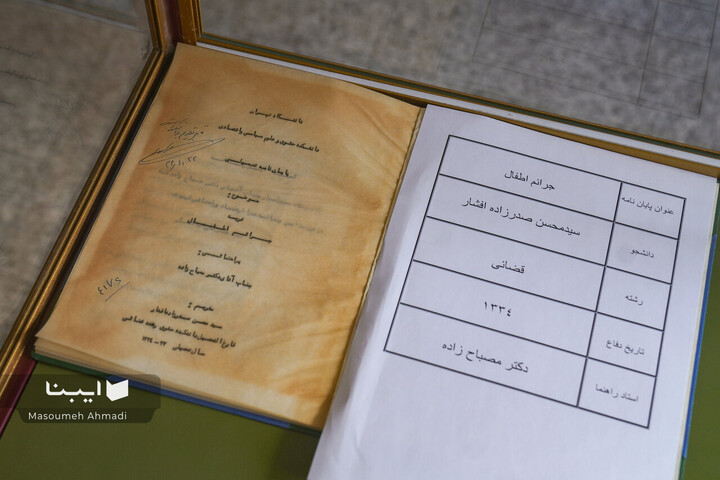 دانشگاه تهران
دانشکده حقوق و علوم سیاسی و اقتصادی
پایان نامه تحصیلی
موضوع :
جرائم اطفال
براهنمائی :
جناب آقای دکتر مصباح زاده
بقلم :
سید محسن صدرزاده افشار
سال تحصیلی ۳۳ - ۱۳۳۴
عنوان پایان نامه
جرائم اطفال
دانشجو
سیدمحسن صدرزاده افشار
رشته
قضائی
تاریخ دفاع
١٣٣٤
استاد راهنما
دکتر مصباح زاده
ایبنا
Masoumeh Ahmadi